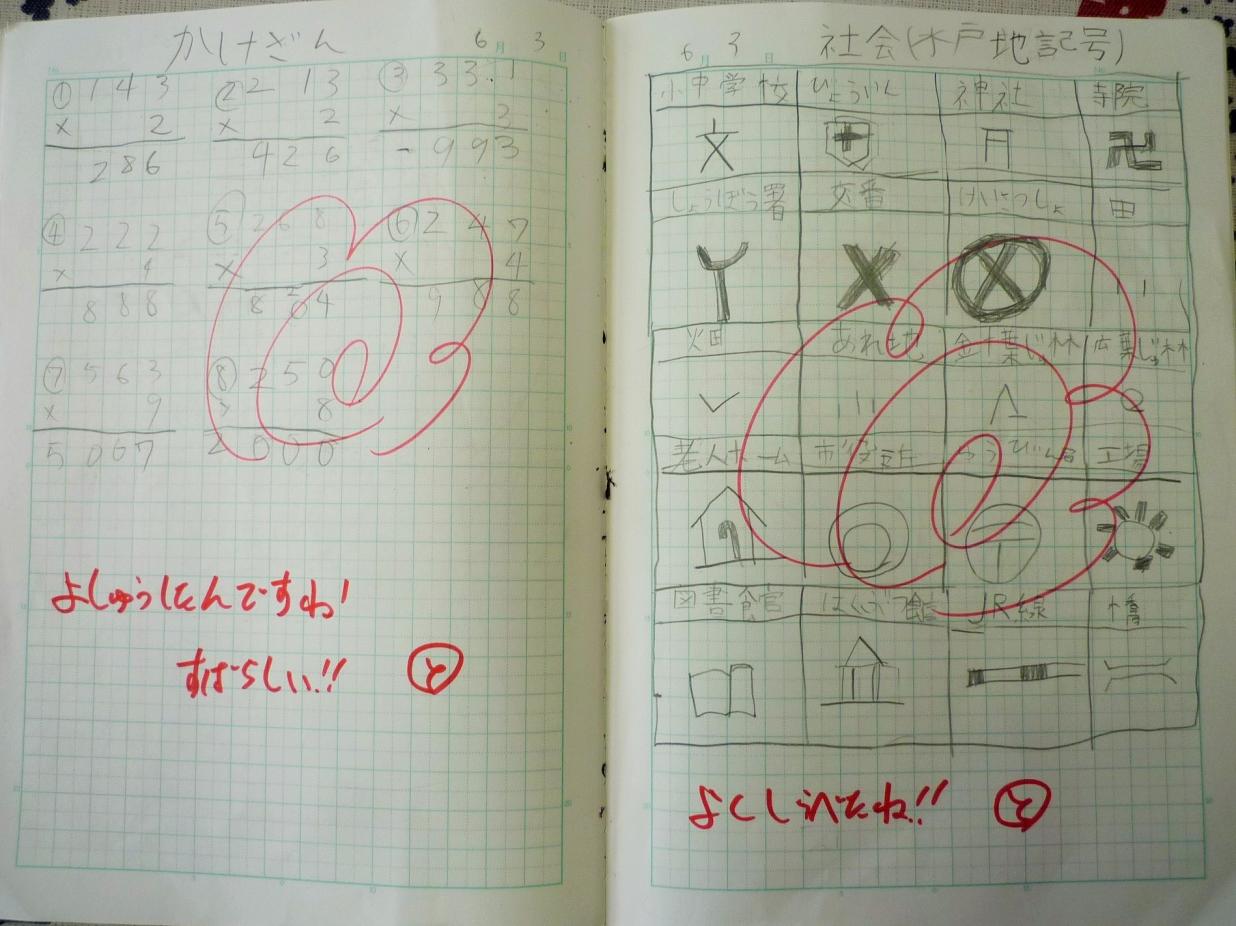 かけざん 6月3日
① 143 ② 213 ③ 331
× 2 × 2 × 3
286 426 993
④ 222 ⑤ 268 ⑥ 247
× 4 × 3 × 4
888 804 988
⑦ 563 ⑧ 250
× 9 × 8
5067 2000
よしゅうしたんですね!
すばらしい!! と
6月3日 社会(水戸地記号)
小中学校 びょういん 神社 寺院
文 卍
しょうぼう署 交番 けいさつしょ 田
X
畑 あれ地 針葉じゅ林 広葉じゅ林
老人ホーム 市役所 ゆうびん局 工場
図書館 はくぶつ館 JR線 橋
よくしらべたね!! と